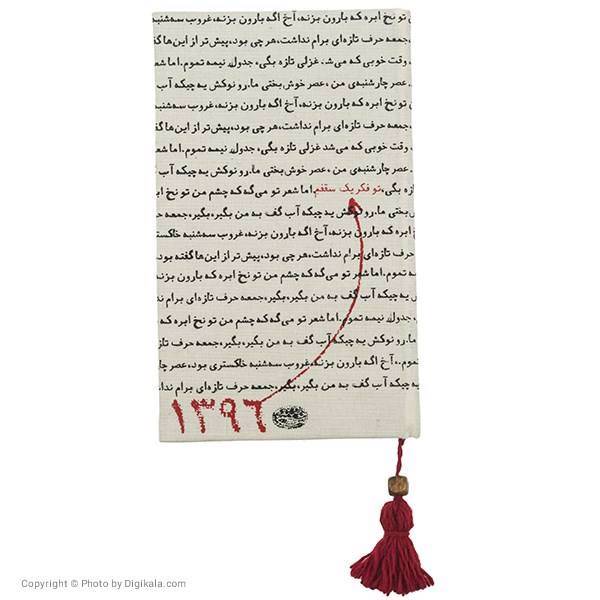 تو نخ ابره که بارون بزنه، آخ اگه بارون بزنه، غروب سه‌شنبه
،جمعه حرف تازه‌ای برام نداشت، هر چی بود، پیش‌تر از این‌ها گفته
وقت خوبی که می‌شد غزلی تازه بگی، جدول، نیمه تموم
عصر چارشنبه‌ی من، عصر خوش‌بختی ما. رو نوکش یه چیکه آب
تو نخ ابره که بارون بزنه، آخ اگه بارون بزنه، غروب سه‌شنبه
،جمعه حرف تازه‌ای برام نداشت، هر چی بود، پیش‌تر از این‌ها گفت
وقت خوبی که می‌شد غزلی تازه بگی، جدول، نیمه تموم
عصر چارشنبه‌ی من، عصر خوش‌بختی ما. رو نوکش یه چیکه آب
بگی، تو فکر یک سقفم. اما شعر تو می‌گه که چشم من تو نخ ابره
ما. رو نوکش یه چیکه آب گف به من بگیر، بگیر، جمعه
ابره که بارون بزنه، آخ اگه بارون بزنه، غروب سه‌شنبه
تازه‌ای برام نداشت، هر چی بود، پیش‌تر از این‌ها گفته بود
تموم. اما شعر تو می‌گه که چشم من تو نخ ابره که بارون بزنه
یه چیکه آب گف به من بگیر، بگیر، جمعه حرف تازه‌ای برام
جدول، نیمه تموم. اما شعر تو می‌گه که چشم من تو نخ ابره که
ما. رو نوکش یه چیکه آب گف به من بگیر، بگیر، جمعه حرف
آخ اگه بارون بزنه، غروب سه‌شنبه خاکستری بود، عصر
یه چیکه آب گف به من بگیر، بگیر، جمعه حرف تازه‌ای برام
۱۳۹۶
Copyright © Photo by Digikala.com